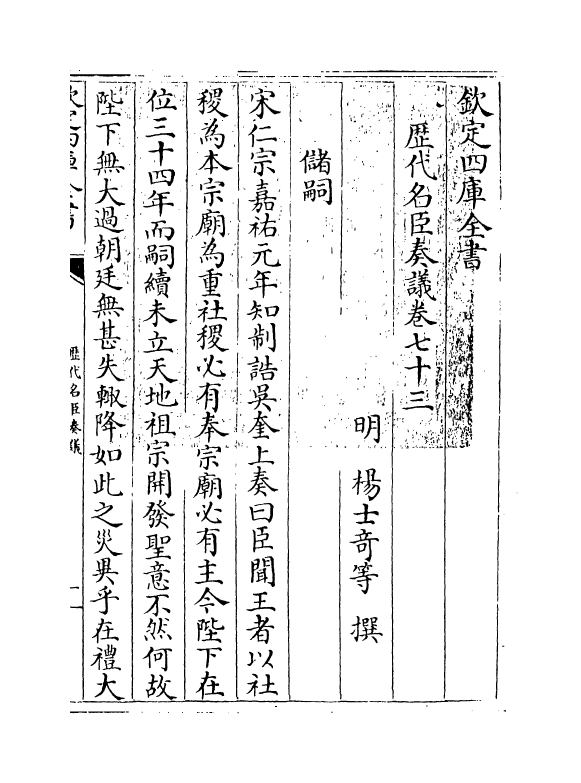 欽定四庫全書
歷代名臣奏議卷七十三
明 楊士奇等 撰
儲嗣
宋仁宗嘉祐元年知制誥吳奎上奏曰臣聞王者以社
稷為本宗廟為重社稷必有奉宗廟必有主今陛下在
位三十四年而嗣續未立天地祖宗開發聖意不然何故
陛下無大過朝廷無甚失輙降如此之災異乎在禮大
欽定四庫全書
歷代名臣奏議
一